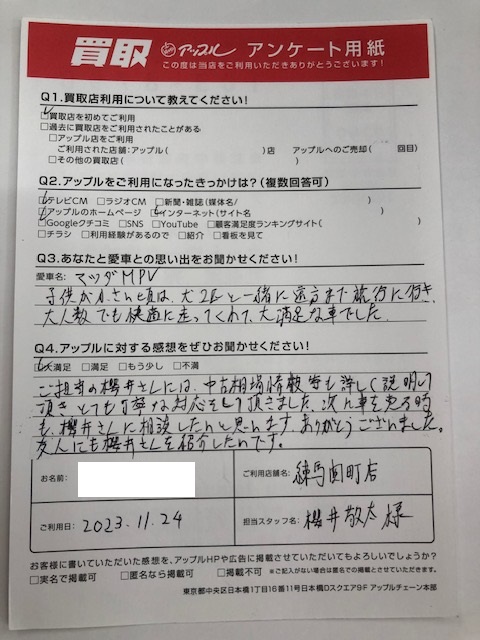 買取 アップル アンケート用紙
この度は当店をご利用いただきありがとうございます!
Q1.買取店利用について教えてください!
□買取店を初めてご利用
□過去に買取店をご利用されたことがある
□アップル店をご利用
ご利用された店舗:アップル( )店 アップルへのご売却( 回目)
□その他の買取店( )
Q2.アップルをご利用になったきっかけは?(複数回答可)
□テレビCM □ラジオCM □新聞・雑誌(媒体名/ )
□アップルのホームページ □インターネット(サイト名 )
□Googleクチコミ □SNS □YouTube □顧客満足度ランキングサイト( )
□チラシ □利用経験があるので □紹介 □看板を見て
Q3.あなたと愛車との思い出をお聞かせください!
愛車名:マツダMPV
子供が小さい頃は、犬2匹と一緒に遠方まで旅行に行き、
大人数でも快適に走ってくれて、大満足な車でした。
Q4.アップルに対する感想をぜひお聞かせください!
□大満足 □満足 □もう少し □不満
ご担当の櫻井さんには、中古相場情報等も詳しく説明して
頂き とても丁寧な対応をして頂きました。次に車を売る時
も、櫻井さんに相談したいと思います。ありがとうございました。
友人にも櫻井さんを紹介したいです。
お名前:
ご利用店舗名: 練馬園町店
ご利用日: 2023.11.24
担当スタッフ名: 櫻井敬太 様
お客様に書いていただいた感想を、アップルHPや広告に掲載させていただいてもよろしいでしょうか?
□実名で掲載可 □匿名なら掲載可 □掲載不可 ※ご記入がない場合は匿名での掲載とさせていただきます。
東京都中央区日本橋1丁目16番11号日本橋Dスクエア9F アップルチェーン本部